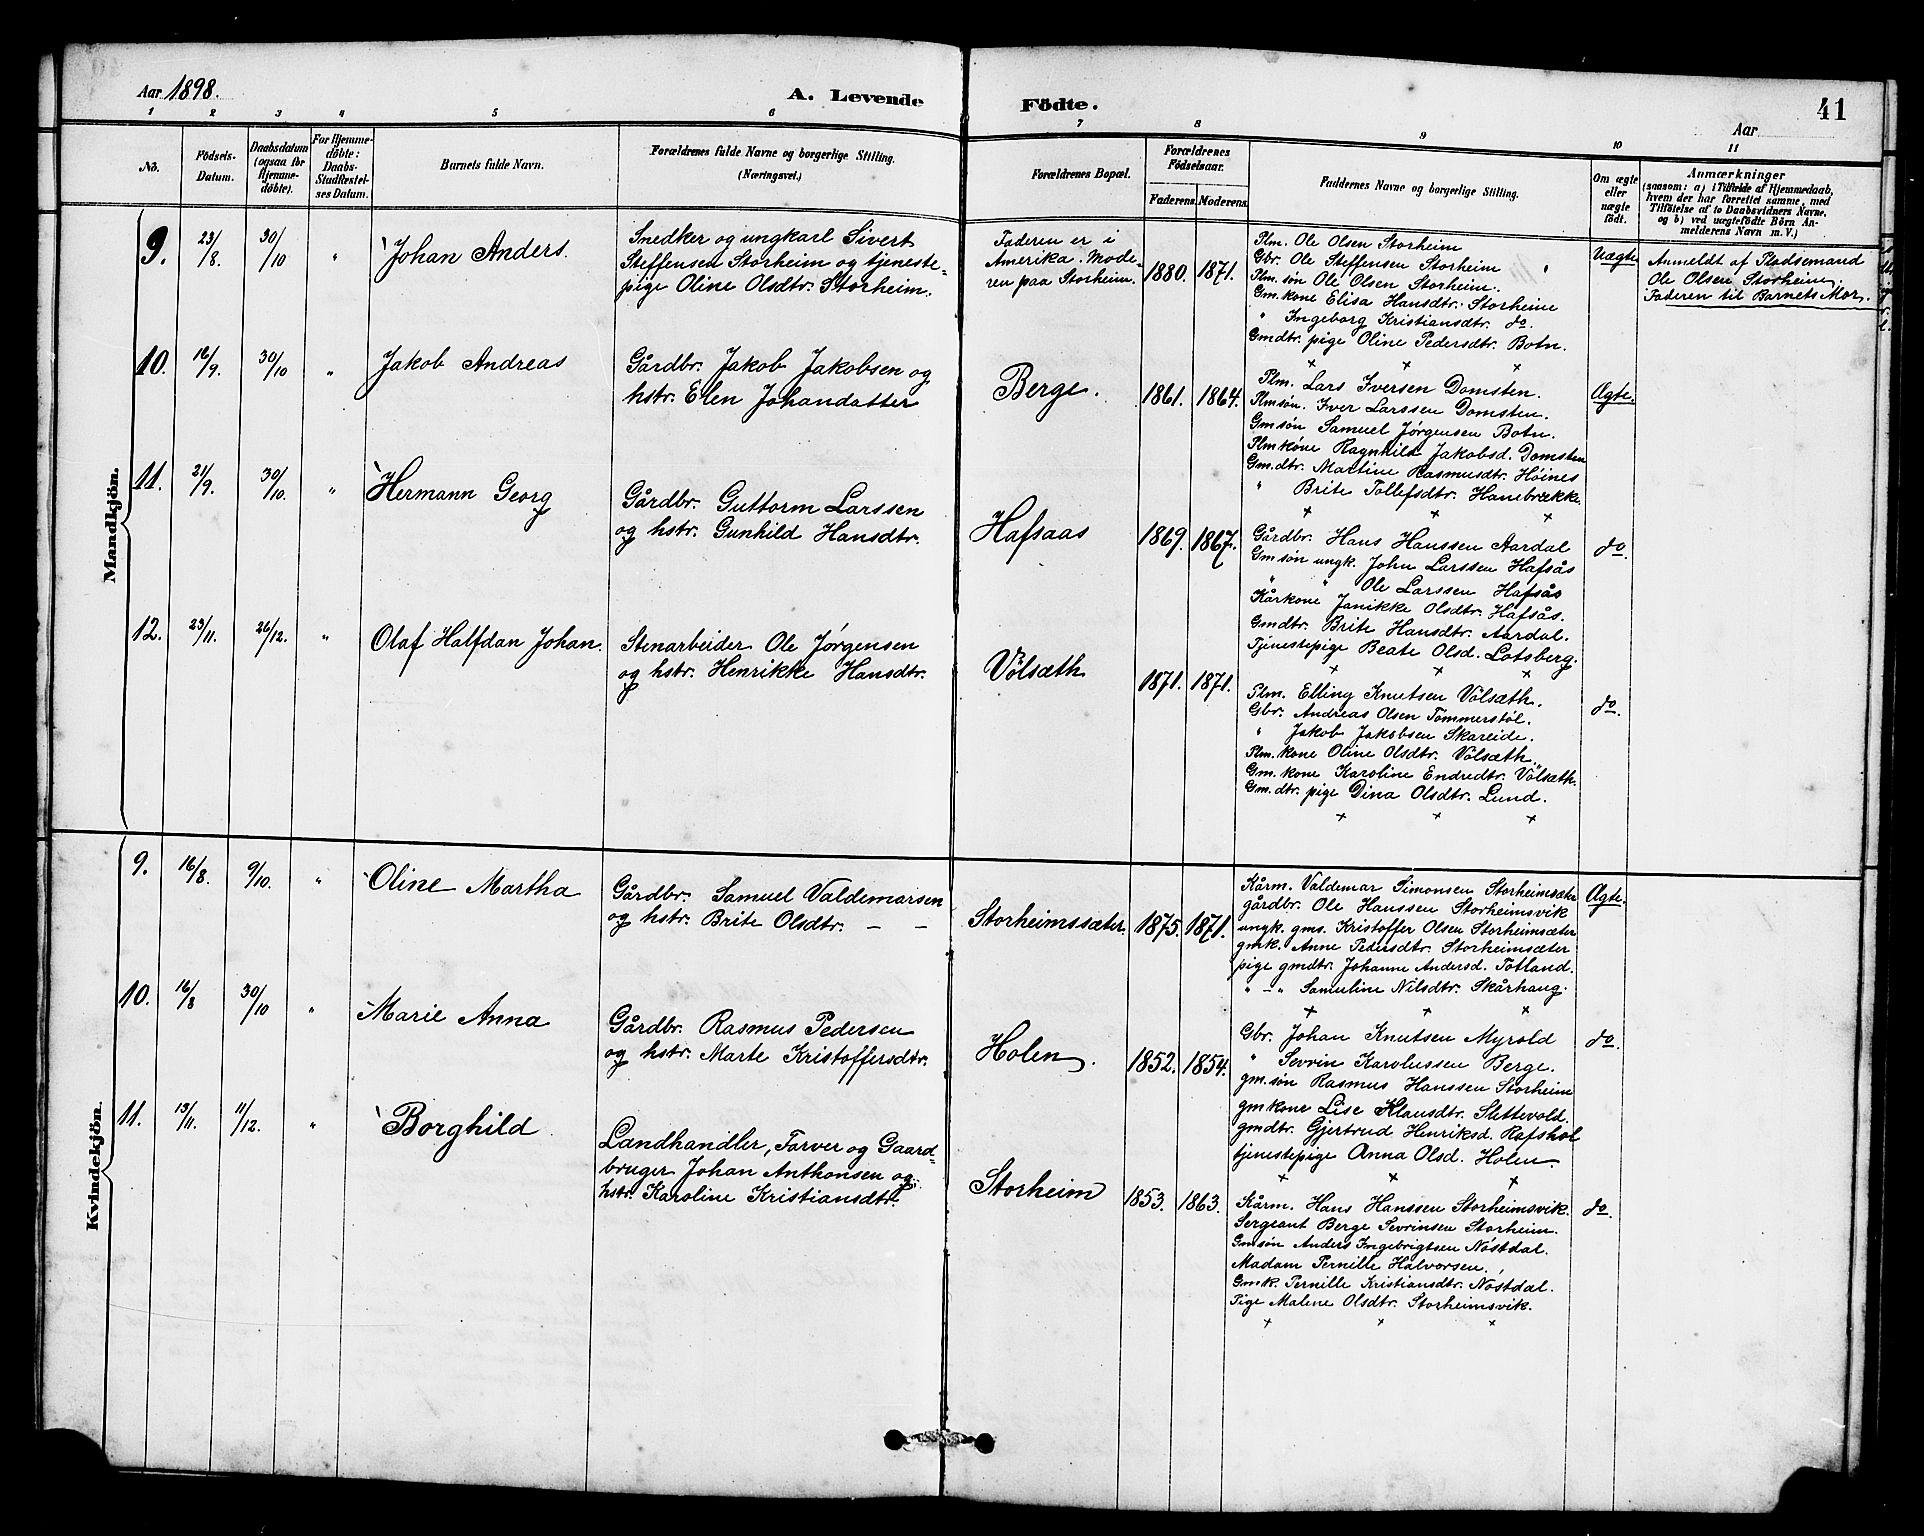 Aar 1898.
A. Levende Födte.
41
Aar
1 2 3 4 5 6 7 8 9 10 11
No.
Födsels-Datum.
Daabsdatum (ogsaa for Hjemme-döbte).
For Hjemme-döbte: Daabs-Stadfæstel-ses Datum.
Barnets fulde Navn.
Forældrenes fulde Navne og borgerlige Stilling. (Næringsvei.)
Forældrenes Bopæl.
Forældrenes Födselsaar.
Faderens. Moderens.
Faddernes Navne og borgerlige Stilling.
Om ægte eller uægte födt.
Anmærkninger
(saasom: a) i Tilfælde af Hjemmedaab,
hvem der har forrettet samme, med
Tilföielse af to Daabsvidners Navne,
og b) ved uægtefödte Börn An-
melderens Navn m. V.)
Mandkjön.
9. 23/8. 30/10 " Johan Anders.
Snedker og ungkarl Sivert
Steffensen Storheim og tjeneste-
pige Oline Olsdtr. Storheim.
Faderen er i
Amerika. Mode-
ren paa Storheim.
1880. 1871.
Plm. Ole Olsen Storheim
Gbr. Ole Steffensen Storheim "
Plm. søn Ole Olsen Storheim.
Gm. kone Elisa Hansdtr. Storheim
" Ingeborg Kristiansdtr. do.
Gmdtr. pige Oline Pedersdtr. Botn.
+ + +
Uægte
Anmeldt af Pladsemand
Ole Olsen Storheim,
Faderen til Barnets Mor.
10. 16/9. 30/10 " Jakob Andreas
Gårdbr. Jakob Jakobsen og
hstr. Elen Johandatter
Berge.
1861. 1864.
Plm. Lars Iversen Domsten.
Plmsøn. Iver Larssen Domsten.
Gmsøn Samuel Jørgensen Botn.
Plmkone Ragnhild Jakobsd. Domsten
Gm.dtr. Martine Rasmusdtr. Höines
" Brite Tollefsdtr. Hanebrække.
+ + +
Ægte.
11. 21/9. 30/10. " Hermann Georg
Gårdbr. Guttorm Larssen
og hstr. Gunhild Hansdtr.
Hafsaas
1869. 1867.
Gårdbr. Hans Hanssen Aardal
Gmsøn ungk. John Larssen Hafsås
" " Ole Larssen Hafsås
Kårkone Janikke Olsdtr. Hafsås.
Gmdtr. Brite Hansdtr. Aardal.
Tjenestepige Beate Olsd. Lotsberg.
+ + +
do.
12. 23/11. 26/12. " Olaf Halfdan Johan.
Stenarbeider Ole Jørgensen
og hstr. Henrikke Hansdtr.
Völsæth
1871. 1871.
Plm. Elling Knutsen Völsæth.
Gbr. Andreas Olsen Tömmerstöl.
" Jakob Jakobsen Skareide.
Plm. kone Oline Olsdtr. Völsæth.
Gm. kone Karoline Endredtr. Völsæth.
Gm. dtr. pige Dina Olsdtr. Lund.
+ + +
do.
Kvindekjön.
9. 16/8. 9/10. " Oline Martha
Gårdbr. Samuel Valdemarsen
og hstr. Brite Olsdtr. — —
Storheimssæter.
1875. 1871.
Kårm. Valdemar Simonsen Storheimsæter
gårdbr. Ole Hanssen Storheimsvik
ungk. gms. Kristoffer Olsen Storheimsæter
gmk. Anne Pedersdtr. Storheimsæter
pige gmdtr. Johanne Andersd. Totland.
" — " Samuline Nilsdtr. Skårhaug.
+ + +
Ægte.
10. 16/8 30/10 " Marie Anna
Gårdbr. Rasmus Pedersen
og hstr. Marte Kristoffersdtr.
Holen.
1852. 1854.
Gbr. Johan Knutsen Myrold
" Sevrin Karolussen Berge.
gm.søn Rasmus Hanssen Storheim
gmkone Lise Klausdtr. Slettevold.
gmdtr. Gjertrud Henriksd. Rafshol
tjenestepige Anna Olsd. Holen.
+ + +
do.
11. 13/11. 11/12. " Borghild
Landhandler, Farver og Gaard-
bruger Johan Anthonsen og
hstr. Karoline Kristiansdtr.
Storheim
1853. 1863.
Kårm. Hans Hanssen Storheimsvik.
Sergeant Berge Sevrinsen Storheim.
Gmsøn Anders Ingebrigtsen Nöstdal.
Madam Pernille Halvorsen.
Gmk. Pernille Kristiansdtr. Nöstdal.
Pige Malene Olsdtr. Storheimsvik.
+ + +
do.